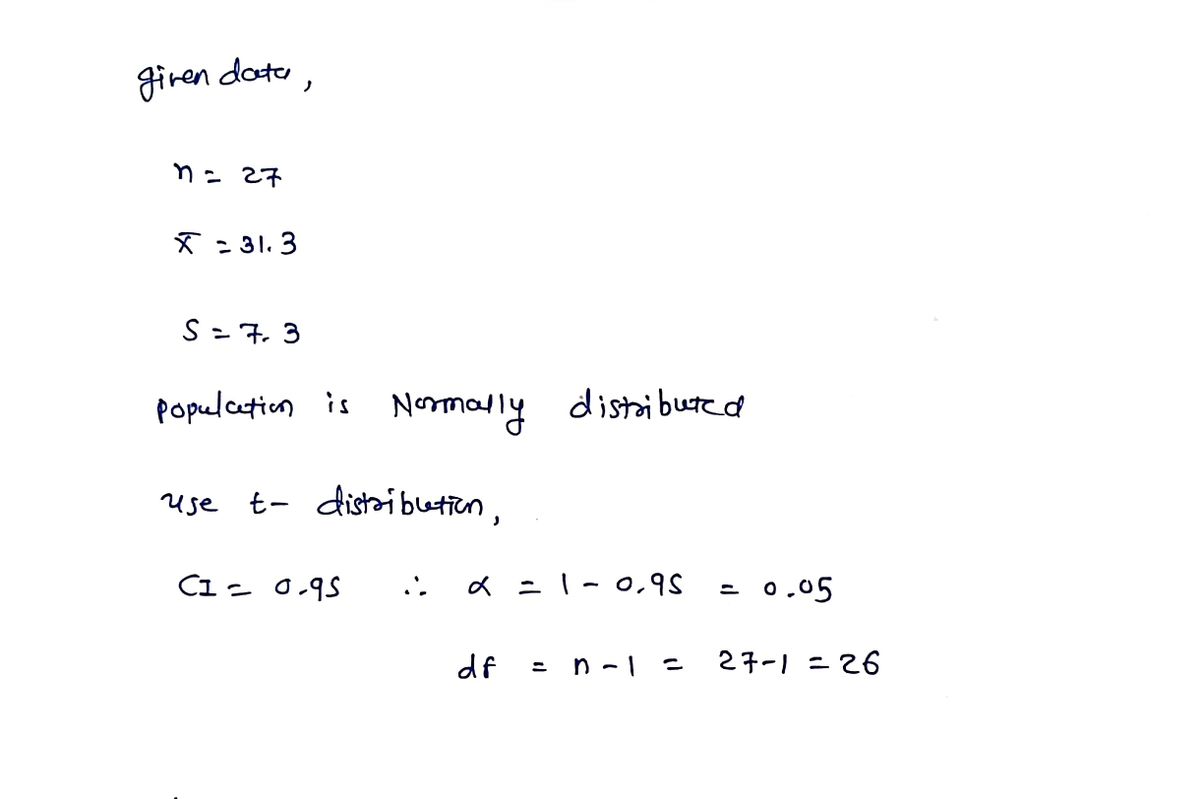 given data,
n = 27
x̄ = 31.3
S = 7.3
population is Normally distributed
use t- distribution,
CI = 0.95 ∴ α = 1 - 0.95 = 0.05
df = n - 1 = 27-1 = 26